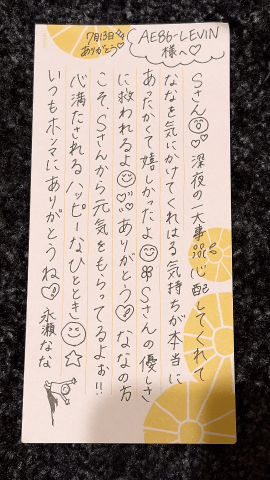 7月13日
ありがとう♡
AE86-LEVIN
様へ♡
Sさん♡深夜の一大事 心配してくれて
ななを気にかけてくれはる気持ちが本当に
あったかくて嬉しかったよ Sさんの優しさ
に救われるよ ありがとう♡ななの方
こそ、Sさんから元気をもらってるよぉ!!
心満たされるハッピーなひととき ☆
いつもホンマにありがとうね♡ 永瀬なな